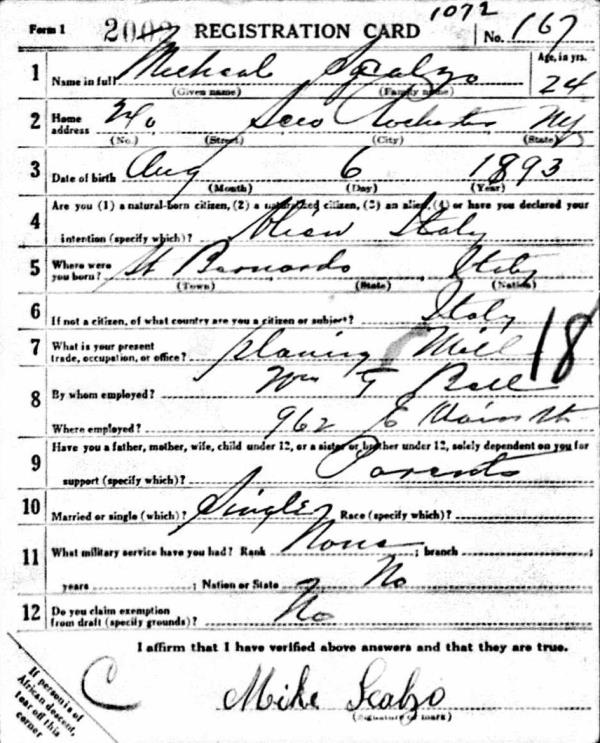 1072
Form 1 REGISTRATION CARD No. 167
1 Name in full Michael Scalzo Age, in yrs. 24
(Given name) (Family name)
2 Home address Scio Rochester NY
(No.) (Street) (City) (State)
3 Date of birth Aug 6 1893
(Month) (Day) (Year)
4 Are you (1) a natural-born citizen, (2) a naturalized citizen, (3) an alien, (4) or have you declared your
intention (specify which)? Alien Italy
5 Where were you born? St Barnardo Italy
(Town) (State) (Nation)
6 If not a citizen, of what country are you a citizen or subject? Italy
7 What is your present trade, occupation, or office? planing Mill 18
8 By whom employed? Wm G Bell
Where employed? 962 E Main St
9 Have you a father, mother, wife, child under 12, or a sister or brother under 12, solely dependent on you for
support (specify which)? Parents
10 Married or single (which)? Single Race (specify which)?
11 What military service have you had? Rank None ; branch ;
years ; Nation or State No
12 Do you claim exemption from draft (specify grounds)? No
I affirm that I have verified above answers and that they are true.
C Mike Scalzo
(Signature or mark)
If person is of
African descent,
tear off this
corner